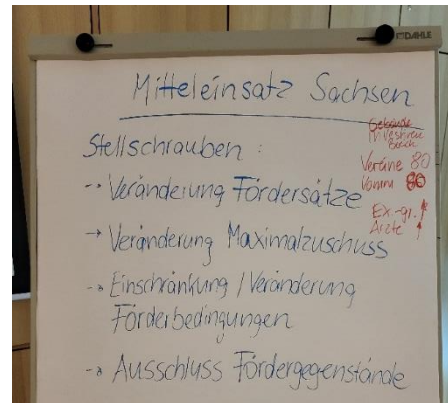 DAHLE
Mitteleinsatz Sachsen
Stellschrauben :
→ Veränderung Fördersätze
→ Veränderung Maximalzuschuss
→ Einschränkung / Veränderung
Förderbedingungen
→ Ausschluss Fördergegenstände
Gebäude
Vereine 80
Komm 80
Ex.-gr. ↑
Ärzte ↑